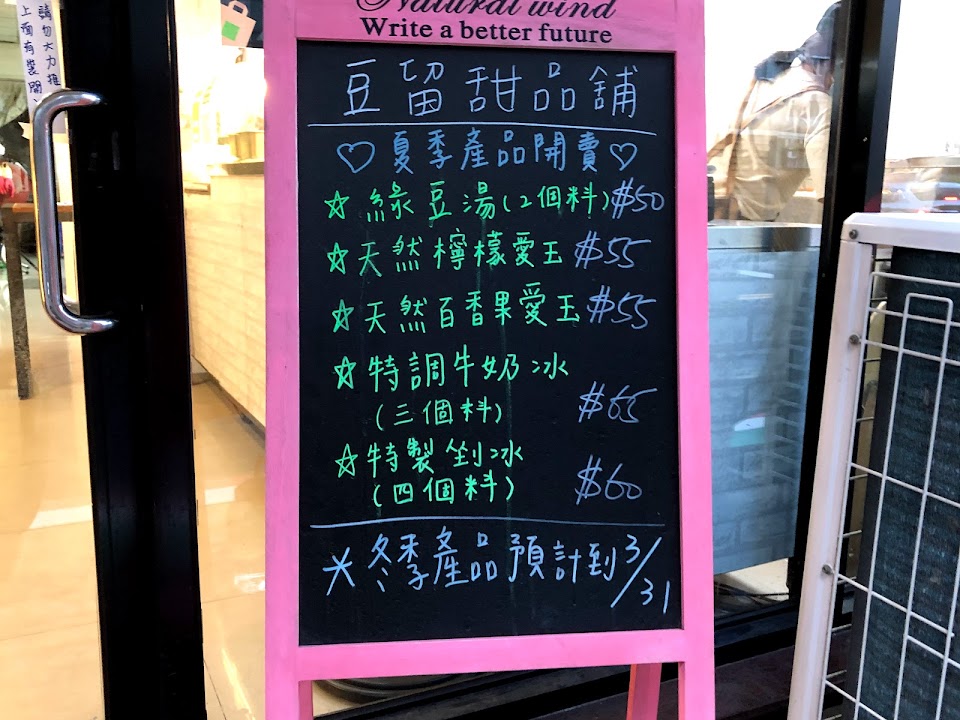 Natural wind
Write a better future
豆留甜品舖
♡夏季產品開賣♡
☆綠豆湯(2個料)$50
☆天然檸檬愛玉$55
☆天然百香果愛玉$55
☆特調牛奶冰
(三個料) $65
☆特製剉冰
(四個料) $60
*冬季產品預計到3/31
請勿大力推
上面有裝開